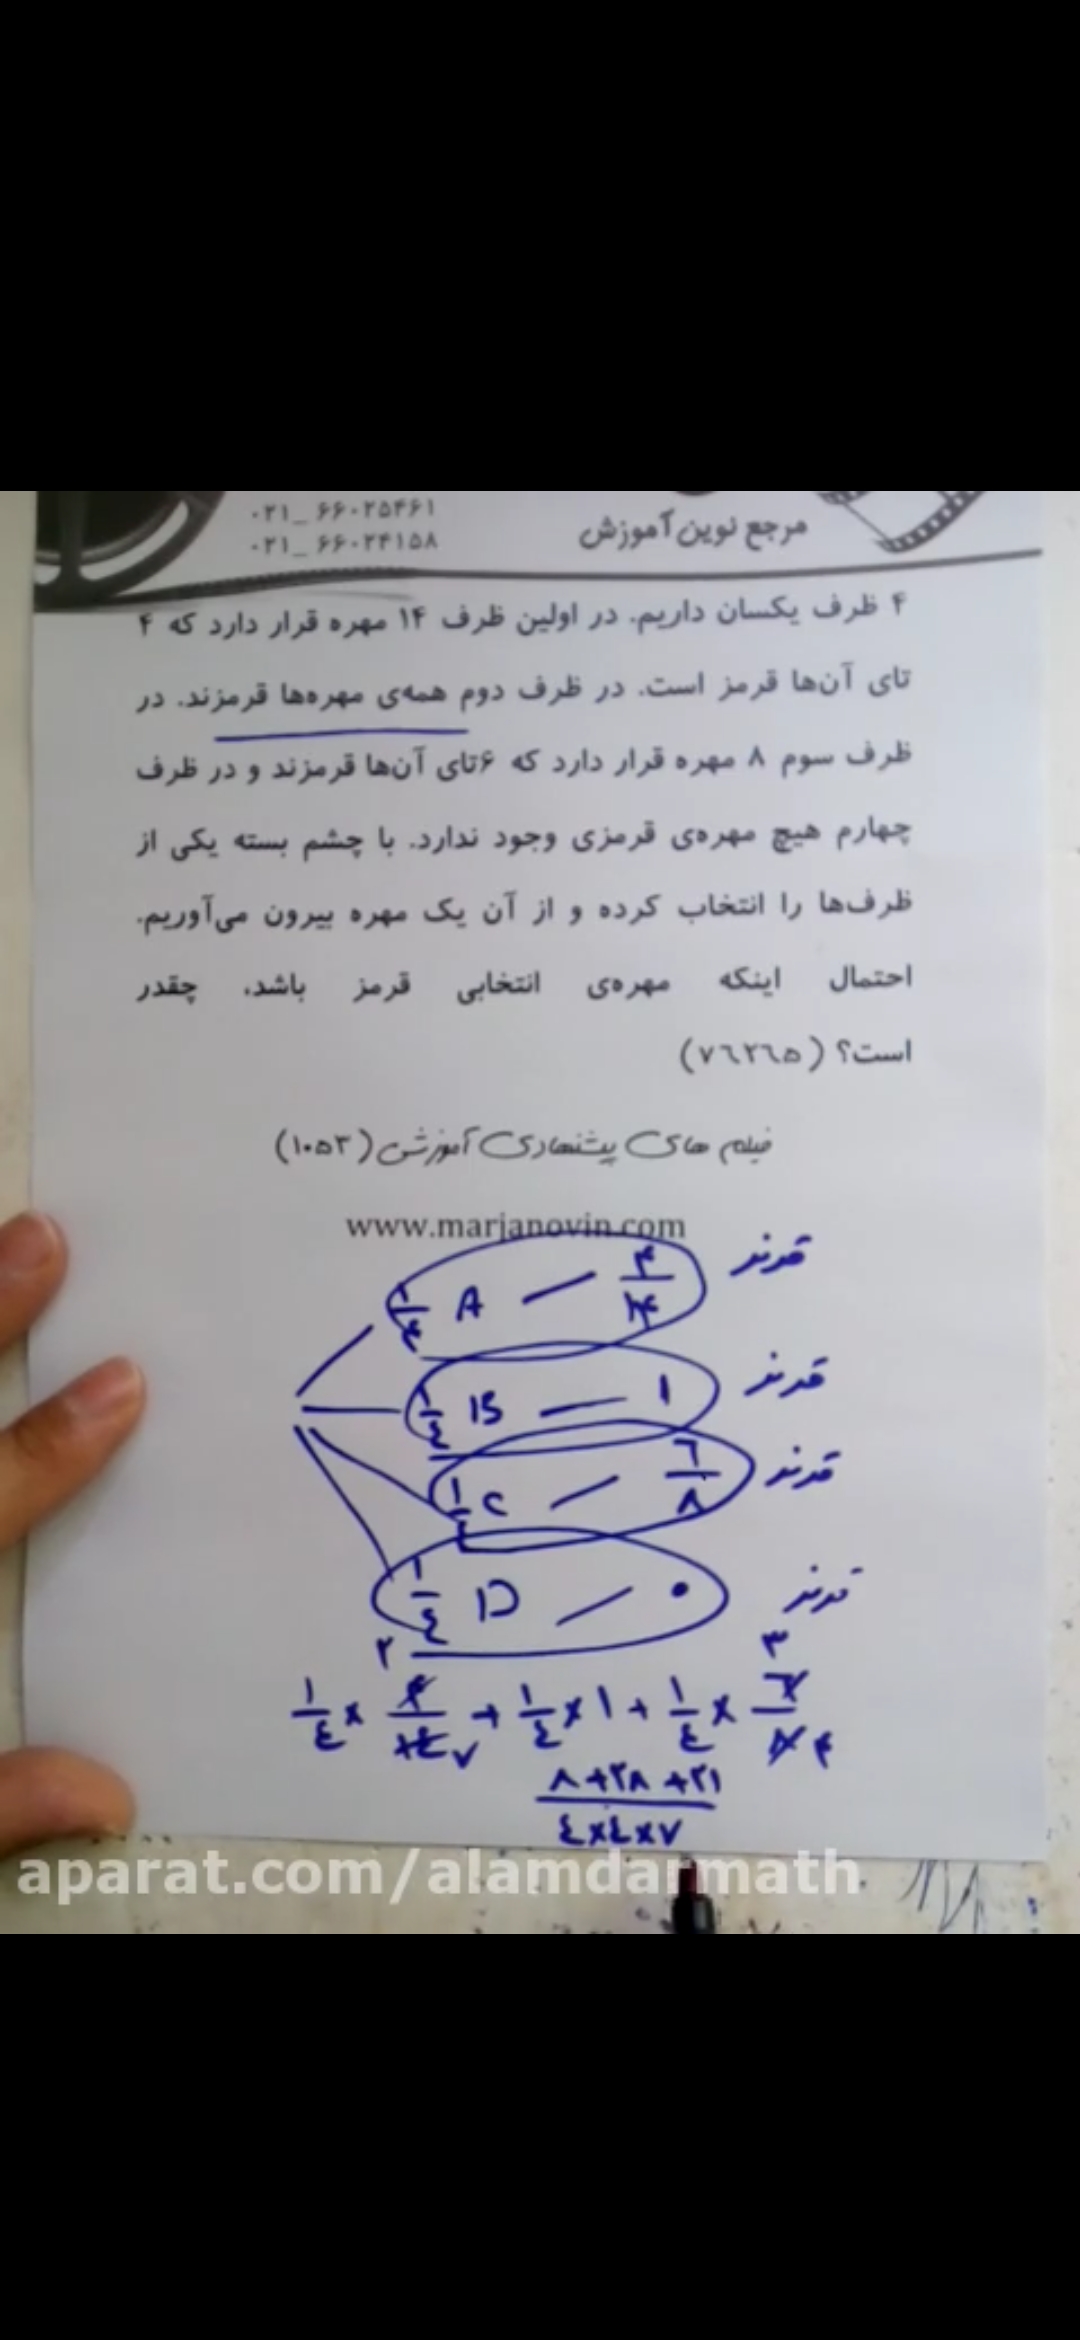 ۰۲۱_ ۶۶۰۲۵۴۶۱
۰۲۱_ ۶۶۰۲۴۱۵۸
مرجع نوین آموزش
۴ ظرف یکسان داریم. در اولین ظرف ۱۴ مهره قرار دارد که ۴
تای آن‌ها قرمز است. در ظرف دوم همه‌ی مهره‌ها قرمزند. در
ظرف سوم ۸ مهره قرار دارد که ۶تای آن‌ها قرمزند و در ظرف
چهارم هیچ مهره‌ی قرمزی وجود ندارد. با چشم بسته یکی از
ظرف‌ها را انتخاب کرده و از آن یک مهره بیرون می‌آوریم.
احتمال اینکه مهره‌ی انتخابی قرمز باشد، چقدر
است؟ (۷۶۲۶۵)
فیلم های پیشنهادی آموزشی (۱۰۵۳)
www.marjanovin.com
۱/۴ A — ۴/۱۴ قرمز
۱/۴ B — ۱ قرمز
۱/۴ C — ۶/۸ قرمز
۱/۴ D — ۰ قرمز
۲ ۳
۱/۴ × ۴/۱۴ ۷ + ۱/۴ × ۱ + ۱/۴ × ۶/۸ ۴
۸+۲۸+۲۱
۴×۴×۷
aparat.com/alamdarmath